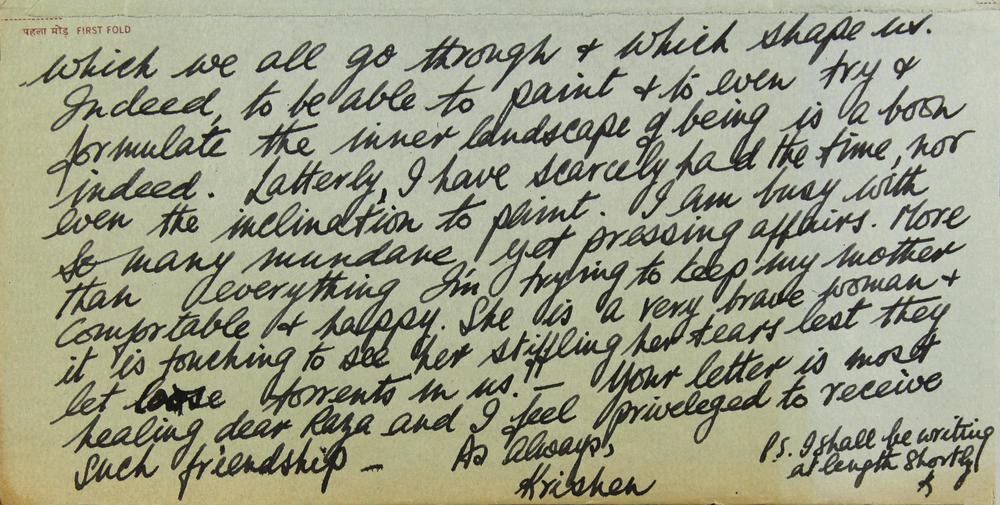 पहला मोड़ FIRST FOLD
which we all go through & which shape us.
Indeed, to be able to paint & to even try &
formulate the inner landscape of being is a boon
indeed. Latterly, I have scarcely had the time, nor
even the inclination to paint. I am busy with
so many mundane yet pressing affairs. More
than everything I'm trying to keep my mother
comfortable & happy. She is a very brave woman &
it is touching to see her stiffling her tears lest they
let loose torrents in us!! — Your letter is most
healing dear Raza and I feel priveleged to receive
such friendship —
As Always,
Krishen
P.S. I shall be writing
at length shortly
K